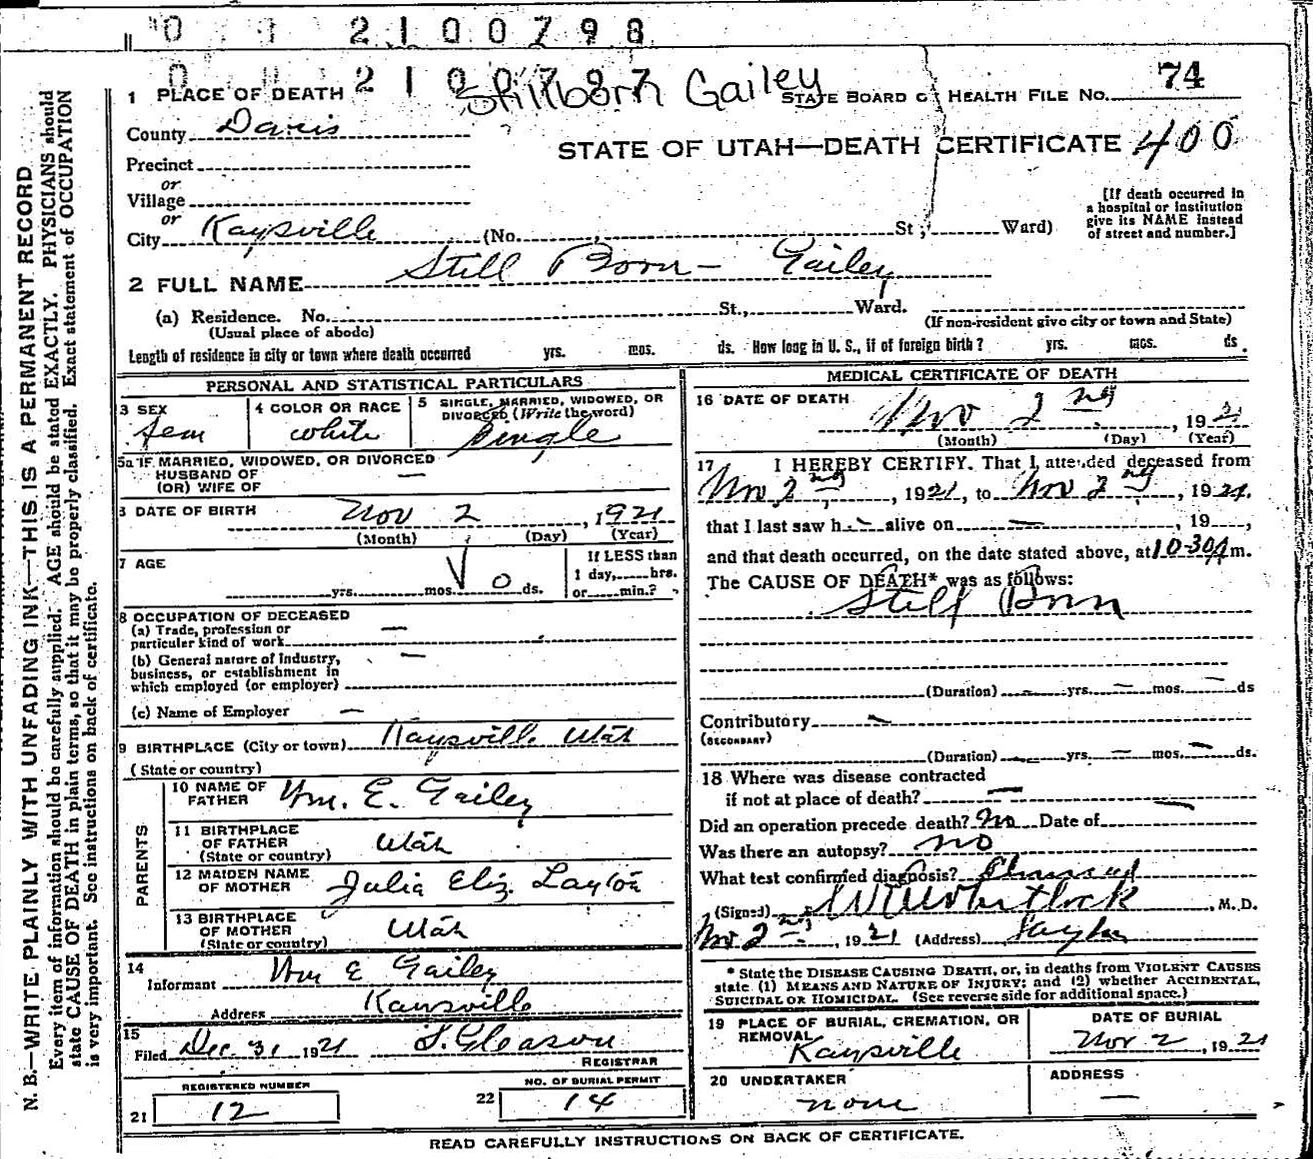 0 1 2 1 0 0 7 9 8
0 2 1 0 0 7 9 7 Stillborn Gailey
1 PLACE OF DEATH STATE BOARD OF HEALTH FILE NO. 74
County Davis
STATE OF UTAH—DEATH CERTIFICATE 400
Precinct
or
Village
or
City Kaysville (No. St.; Ward)
[If death occurred in
a hospital or institution
give its NAME instead
of street and number.]
2 FULL NAME Still Born - Gailey
(a) Residence. No. St., Ward.
(Usual place of abode) (If non-resident give city or town and State)
Length of residence in city or town where death occurred yrs. mos. ds. How long in U. S., if of foreign birth? yrs. mos. ds.
PERSONAL AND STATISTICAL PARTICULARS
3 SEX Fem
4 COLOR OR RACE white
5 SINGLE, MARRIED, WIDOWED, OR
DIVORCED (Write the word)
Single
5a IF MARRIED, WIDOWED, OR DIVORCED
HUSBAND OF —
(OR) WIFE OF
6 DATE OF BIRTH Nov 2, 1921
(Month) (Day) (Year)
7 AGE
yrs. mos. 0 ds.
If LESS than
1 day, hrs.
or min.?
8 OCCUPATION OF DECEASED
(a) Trade, profession or —
particular kind of work
(b) General nature of industry, —
business, or establishment in
which employed (or employer)
(c) Name of Employer —
9 BIRTHPLACE (City or town) Kaysville Utah
(State or country)
PARENTS
10 NAME OF
FATHER Wm. E. Gailey
11 BIRTHPLACE
OF FATHER Utah
(State or country)
12 MAIDEN NAME
OF MOTHER Julia Eliz. Layton
13 BIRTHPLACE
OF MOTHER Utah
(State or country)
14
Informant Wm E Gailey
Address Kaysville
15
Filed Dec 31, 1921 S. Gleason
REGISTRAR
REGISTERED NUMBER
21 12
NO. OF BURIAL PERMIT
22 14
MEDICAL CERTIFICATE OF DEATH
16 DATE OF DEATH
Nov 2nd, 1921
(Month) (Day) (Year)
17 I HEREBY CERTIFY. That I attended deceased from
Nov 2nd, 1921, to Nov 2nd, 1921.
that I last saw h — alive on —, 19 ,
and that death occurred, on the date stated above, at 10-30A m.
The CAUSE OF DEATH* was as follows:
Still Born
(Duration) — yrs. — mos. — ds
Contributory —
(SECONDARY)
(Duration) — yrs. — mos. — ds.
18 Where was disease contracted
if not at place of death? —
Did an operation precede death? No Date of —
Was there an autopsy? no
What test confirmed diagnosis?
(Signed) Whitlock, M. D.
Nov 2nd, 1921 (Address) Layton
* State the DISEASE CAUSING DEATH, or, in deaths from VIOLENT CAUSES
state (1) MEANS AND NATURE OF INJURY; and (2) whether ACCIDENTAL,
SUICIDAL OR HOMICIDAL. (See reverse side for additional space.)
19 PLACE OF BURIAL, CREMATION, OR
REMOVAL
Kaysville
DATE OF BURIAL
Nov 2, 1921
20 UNDERTAKER
none
ADDRESS
—
READ CAREFULLY INSTRUCTIONS ON BACK OF CERTIFICATE.
N. B.—WRITE PLAINLY WITH UNFADING INK—THIS IS A PERMANENT RECORD
Every item of information should be carefully supplied. AGE should be stated EXACTLY. PHYSICIANS should
state CAUSE OF DEATH in plain terms, so that it may be properly classified. Exact statement of OCCUPATION
is very important. See instructions on back of certificate.